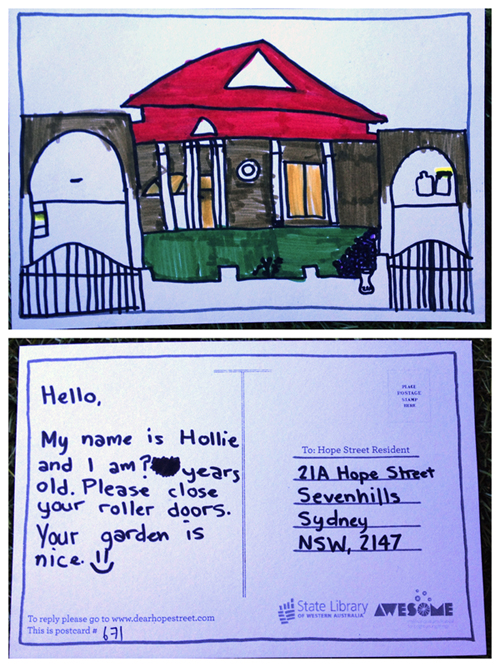 Hello,
My name is Hollie
and I am ? years
old. Please close
your roller doors.
Your garden is
nice.
To reply please go to www.dearhopestreet.com
This is postcard # 671
PLACE
POSTAGE
STAMP
HERE
To: Hope Street Resident
21A Hope Street
Sevenhills
Sydney
NSW, 2147
State Library
OF WESTERN AUSTRALIA
AWESOME